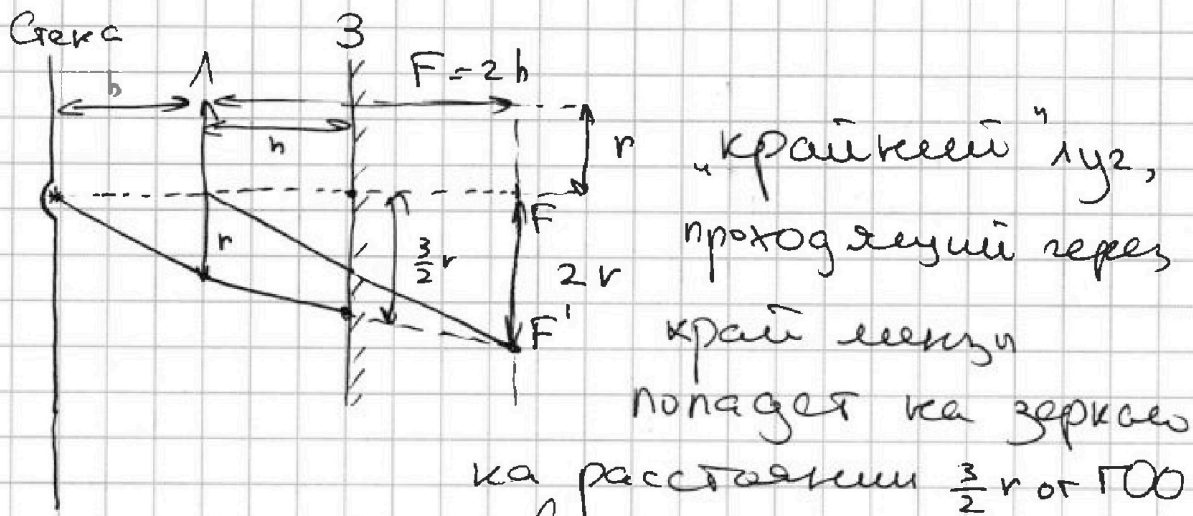 Стена
З
Л
F = 2h
h
h
r
r
3/2 r
F
2r
F'
„крайний" луч,
проходящий через
край линзы
попадет на зеркало
на расстоянии 3/2 r от ГОО